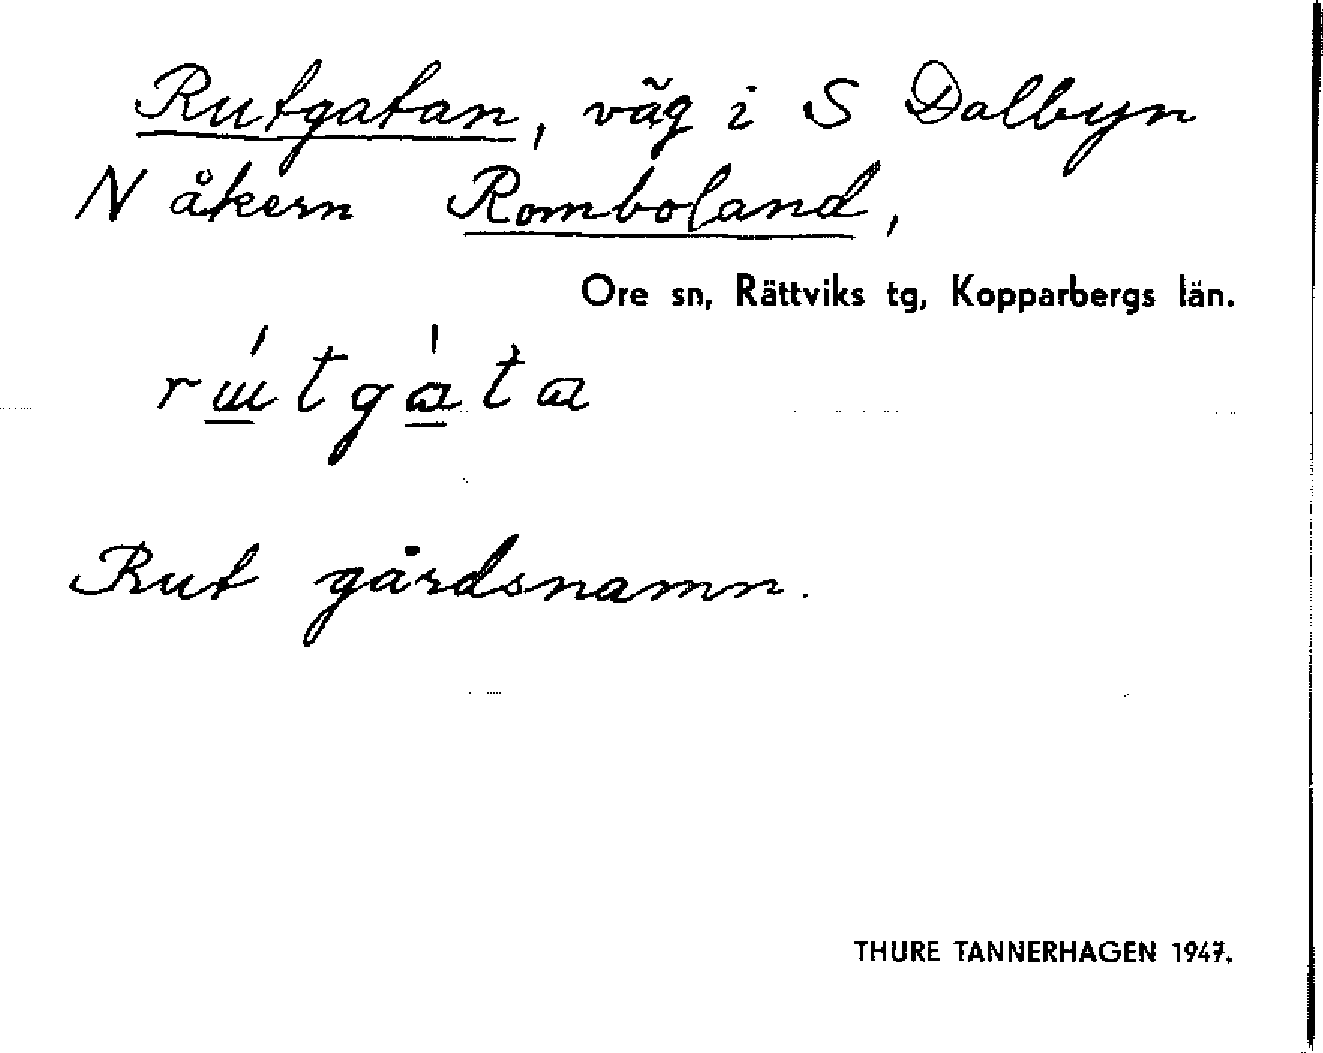 Rutgatan, väg i S Dalbyn
N åkern Romboland,
Ore sn, Rättviks tg, Kopparbergs län.
rɯ́tgɑ́tɑ
Rut gårdsnamn.
THURE TANNERHAGEN 1947.